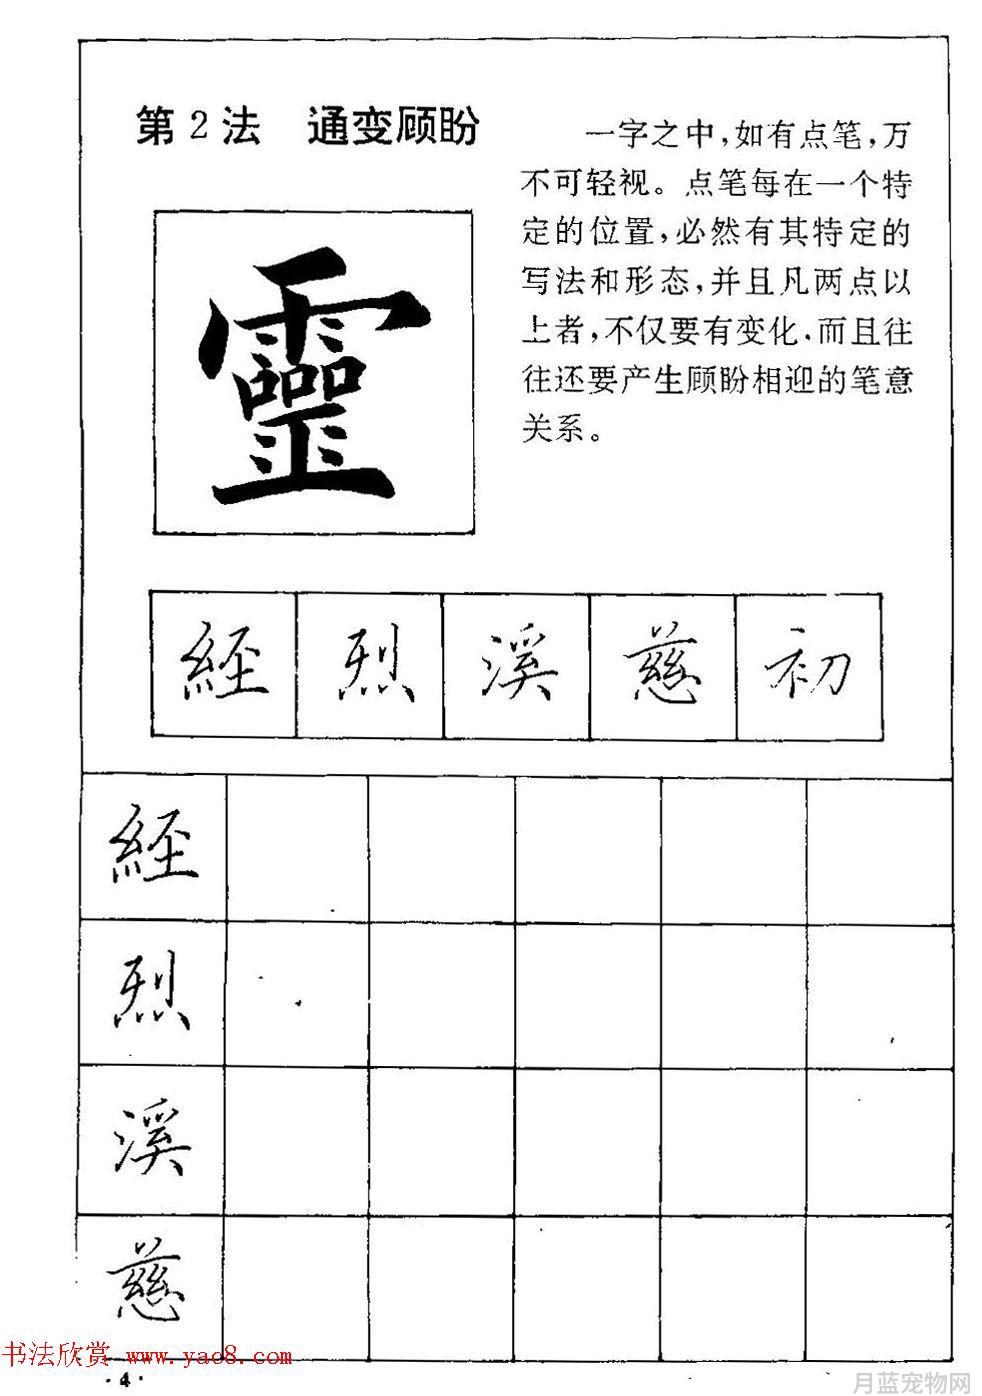 第2法　通变顾盼
一字之中,如有点笔,万
不可轻视。点笔每在一个特
定的位置,必然有其特定的
写法和形态,并且凡两点以
上者,不仅要有变化.而且往
往还要产生顾盼相迎的笔意
关系。
靈
経 烈 溪 慈 初
経
烈
溪
慈
书法欣赏 www.yac8.com
·4·
月蓝宠物网